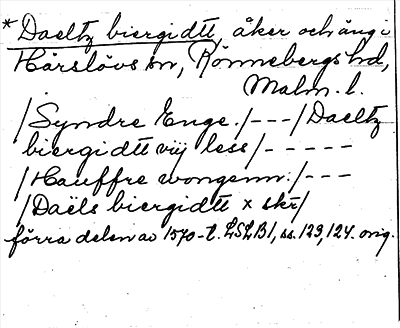 * Daeltz biergidtt, åker och äng i
Härslövs sn, Rönnebergs hd,
Malm. l.
/Syndre Enge./---/Daeltz
biergidtt vij less/-----
/Hauffre wongenn./---
/Daëls biergidtt x skr/
förra delen av 1570-t. LSLB1, ss. 123, 124. orig.